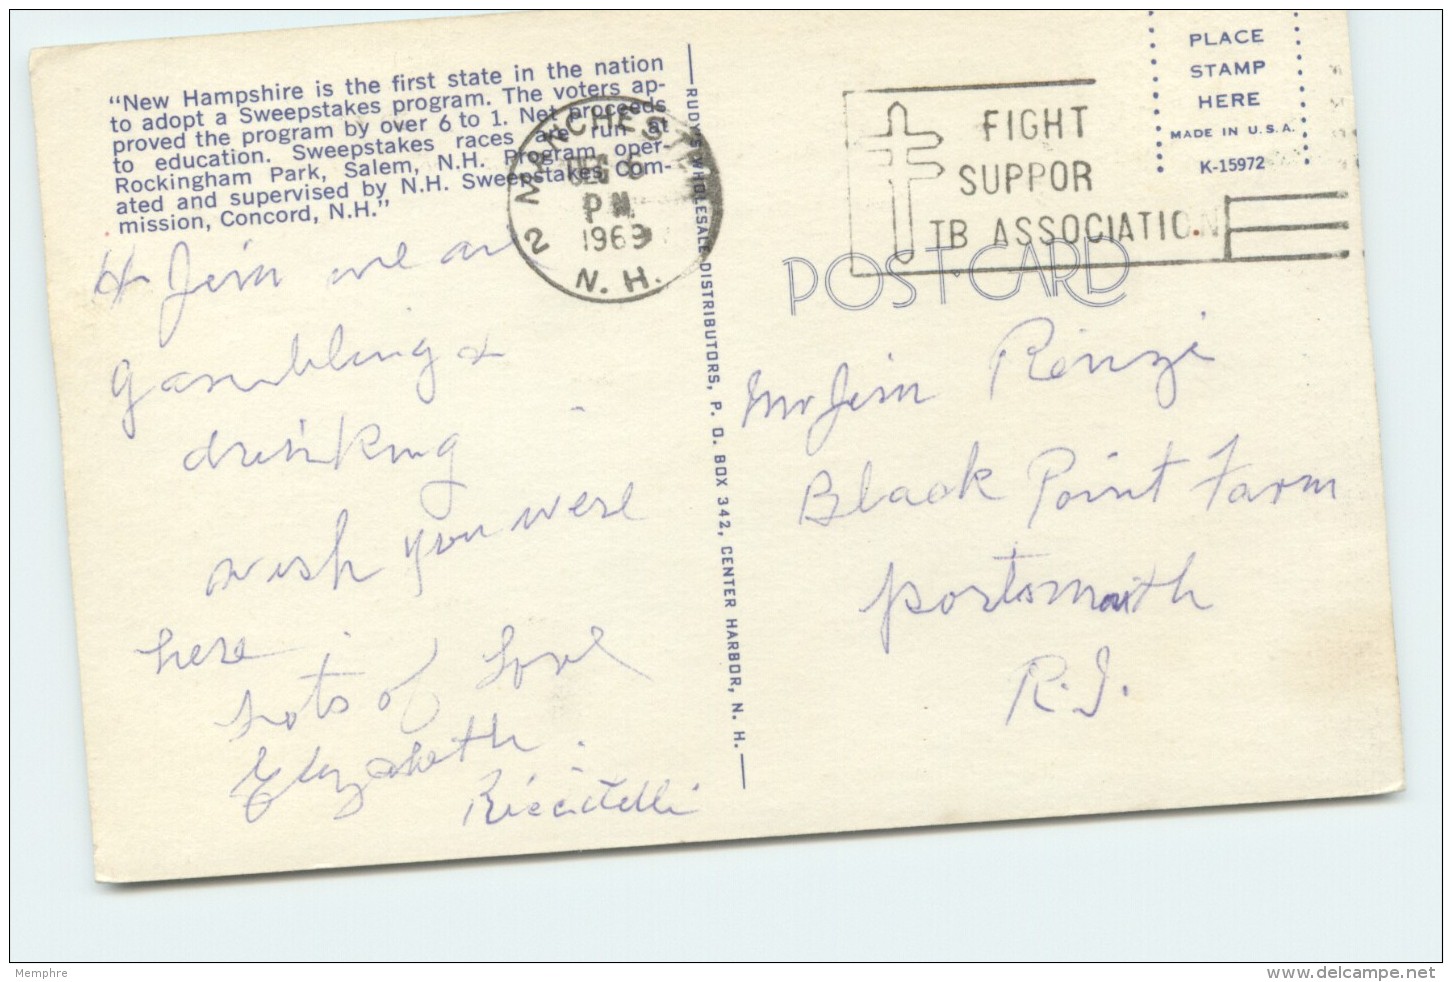 "New Hampshire is the first state in the nation
to adopt a Sweepstakes program. The voters ap-
proved the program by over 6 to 1. Net proceeds
to education. Sweepstakes races are run at
Rockingham Park, Salem, N.H. Program oper-
ated and supervised by N.H. Sweepstakes Com-
mission, Concord, N.H."
Jim we are
gambling &
drinking
wish you were
here.
Lots of Love
Elizabeth
Riccitelli
MANCHESTER
DEC 6
PM
1969
2 N.H.
RUDY'S WHOLESALE DISTRIBUTORS, P. O. BOX 342, CENTER HARBOR, N. H.
FIGHT
SUPPOR
TB ASSOCIATION
PLACE
STAMP
HERE
MADE IN U.S.A.
K-15972
POST CARD
Mr Jim Renzi
Black Point Farm
Portsmouth
R.I.
Memphre
www.delcampe.net